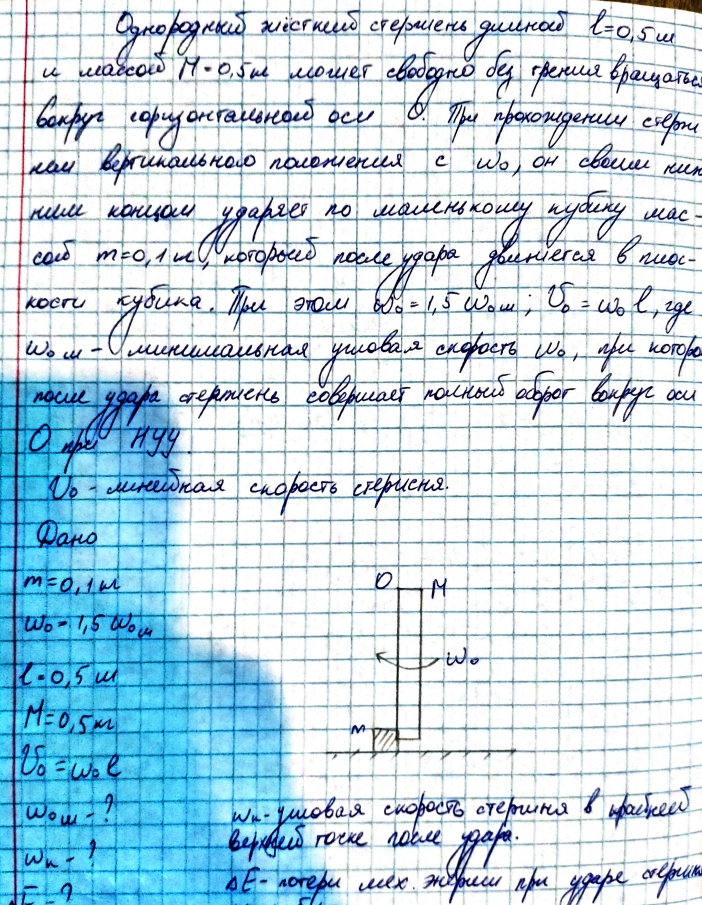 Однородный жёсткий стержень длиной l=0,5 м
и массой M=0,5кг может свободно без трения вращаться
вокруг горизонтальной оси O. При прохождении стерж-
нем вертикального положения с ω₀, он своим ниж
ним концом ударяет по маленькому кубику мас-
сой m=0,1 кг, который после удара движется в плос-
кости кубика. При этом ω₀=1,5 ω₀м; V₀=ω₀l, где
ω₀м - минимальная угловая скорость ω₀, при которо
после удара стержень совершает полный оборот вокруг оси
O при НУУ.
V₀ - линейная скорость стержня.
Дано
m=0,1кг
ω₀=1,5 ω₀м
l=0,5 м
M=0,5кг
V₀=ω₀l
ω₀м - ?
ωк - ?
ΔE - ?
O M
ω₀
m
ωк - угловая скорость стержня в крайней
верхней точке после удара.
ΔE - потери мех. энергии при ударе стержня